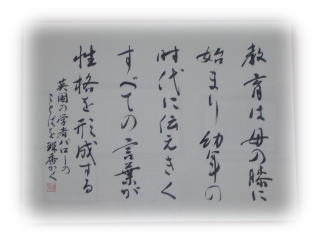 教育は母の膝に
始まり幼年の
時代に伝えきく
すべての言葉が
性格を形成する
英国の学者バローの
ことばを 香かく